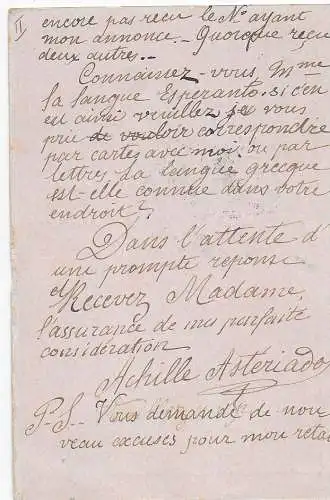 II
encore pas reçu le No ayant
mon annonce.- Quoique reçu
deux autres.-
Connaissez-vous, Mme
la langue Esperanto. si c'en
est ainsi veuillez je vous
prie de vouloir correspondre
par cartes avec moi, ou par
lettres. la langue grecque
est-elle connue dans votre
endroit?
Dans l'attente d'
une prompte reponse
Recevez Madame,
l'assurance de ma parfaite
considération
Achille Astériado
P.S.- Vous demande de nou
veau excuses pour mon reta